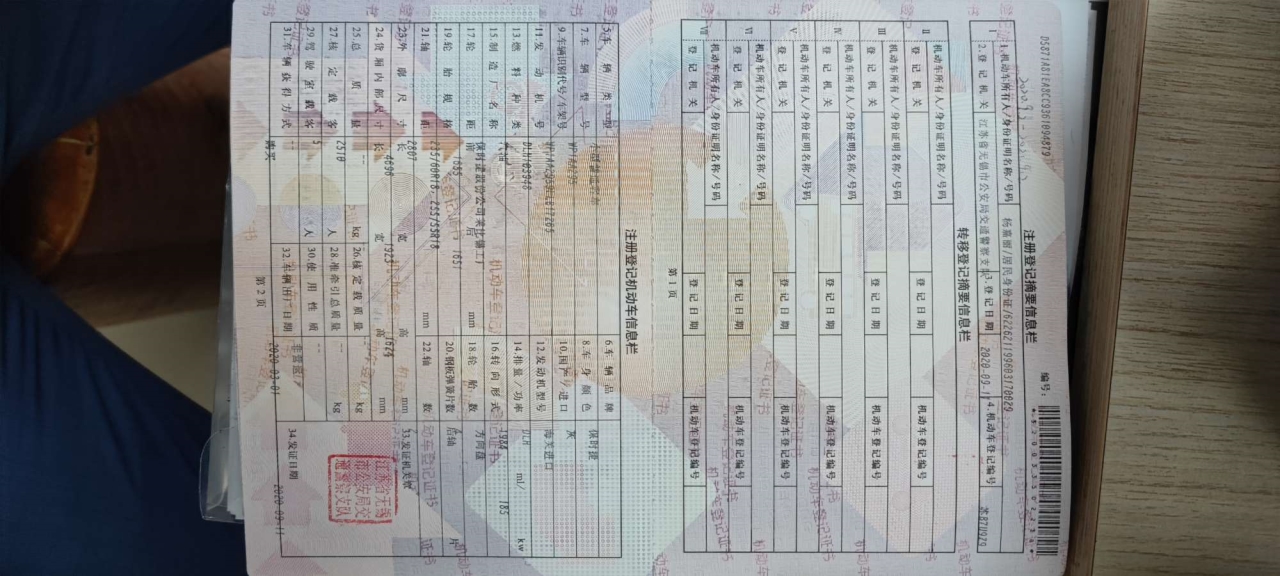 注册登记摘要信息栏
编号:
1.机动车所有人/身份证明名称/号码
居民身份证/622621199603170029
2.登记机关 江苏省无锡市公安局交通警察支队 3.登记日期 2020-09-11 4.机动车登记编号
转移登记摘要信息栏
II 机动车所有人/身份证明名称/号码
登记机关 登记日期 机动车登记编号
III 机动车所有人/身份证明名称/号码
登记机关 登记日期 机动车登记编号
IV 机动车所有人/身份证明名称/号码
登记机关 登记日期 机动车登记编号
V 机动车所有人/身份证明名称/号码
登记机关 登记日期 机动车登记编号
VI 机动车所有人/身份证明名称/号码
登记机关 登记日期 机动车登记编号
VII 机动车所有人/身份证明名称/号码
登记机关 登记日期 机动车登记编号
第1页
注册登记机动车信息栏
5.车辆类型 6.车辆品牌 保时捷
7.车辆型号 8.车身颜色 灰
9.车辆识别代号/车架号 10.国产/进口 海关进口
11.发动机号 12.发动机型号
13.燃料种类 14.排量/功率 1984 ml/ 185 kw
15.制造厂名称 保时捷股份公司莱比锡工厂 16.转向形式 方向盘
17.轮距 前 1655 后 1651 mm 18.轮胎数
19.轮胎规格 235/60R18,255/55R18 20.钢板弹簧片数 后轴 片
21.轴距 2807 mm 22.轴数
23.外廓尺寸 长 4696 宽 1923 高 1624 mm 33.发证机关章
24.货厢内部尺寸 长 宽 高 mm
25.总质量 2510 kg 26.核定载质量 -- kg
27.核定载客 5 人 28.准牵引总质量 -- kg
29.驾驶室载客 -- 人 30.使用性质 非营运
31.车辆获得方式 购买 32.车辆出厂日期 2020-03-01 34.发证日期 2020-09-11
江苏省无锡
市公安局交
通警察支队
第2页